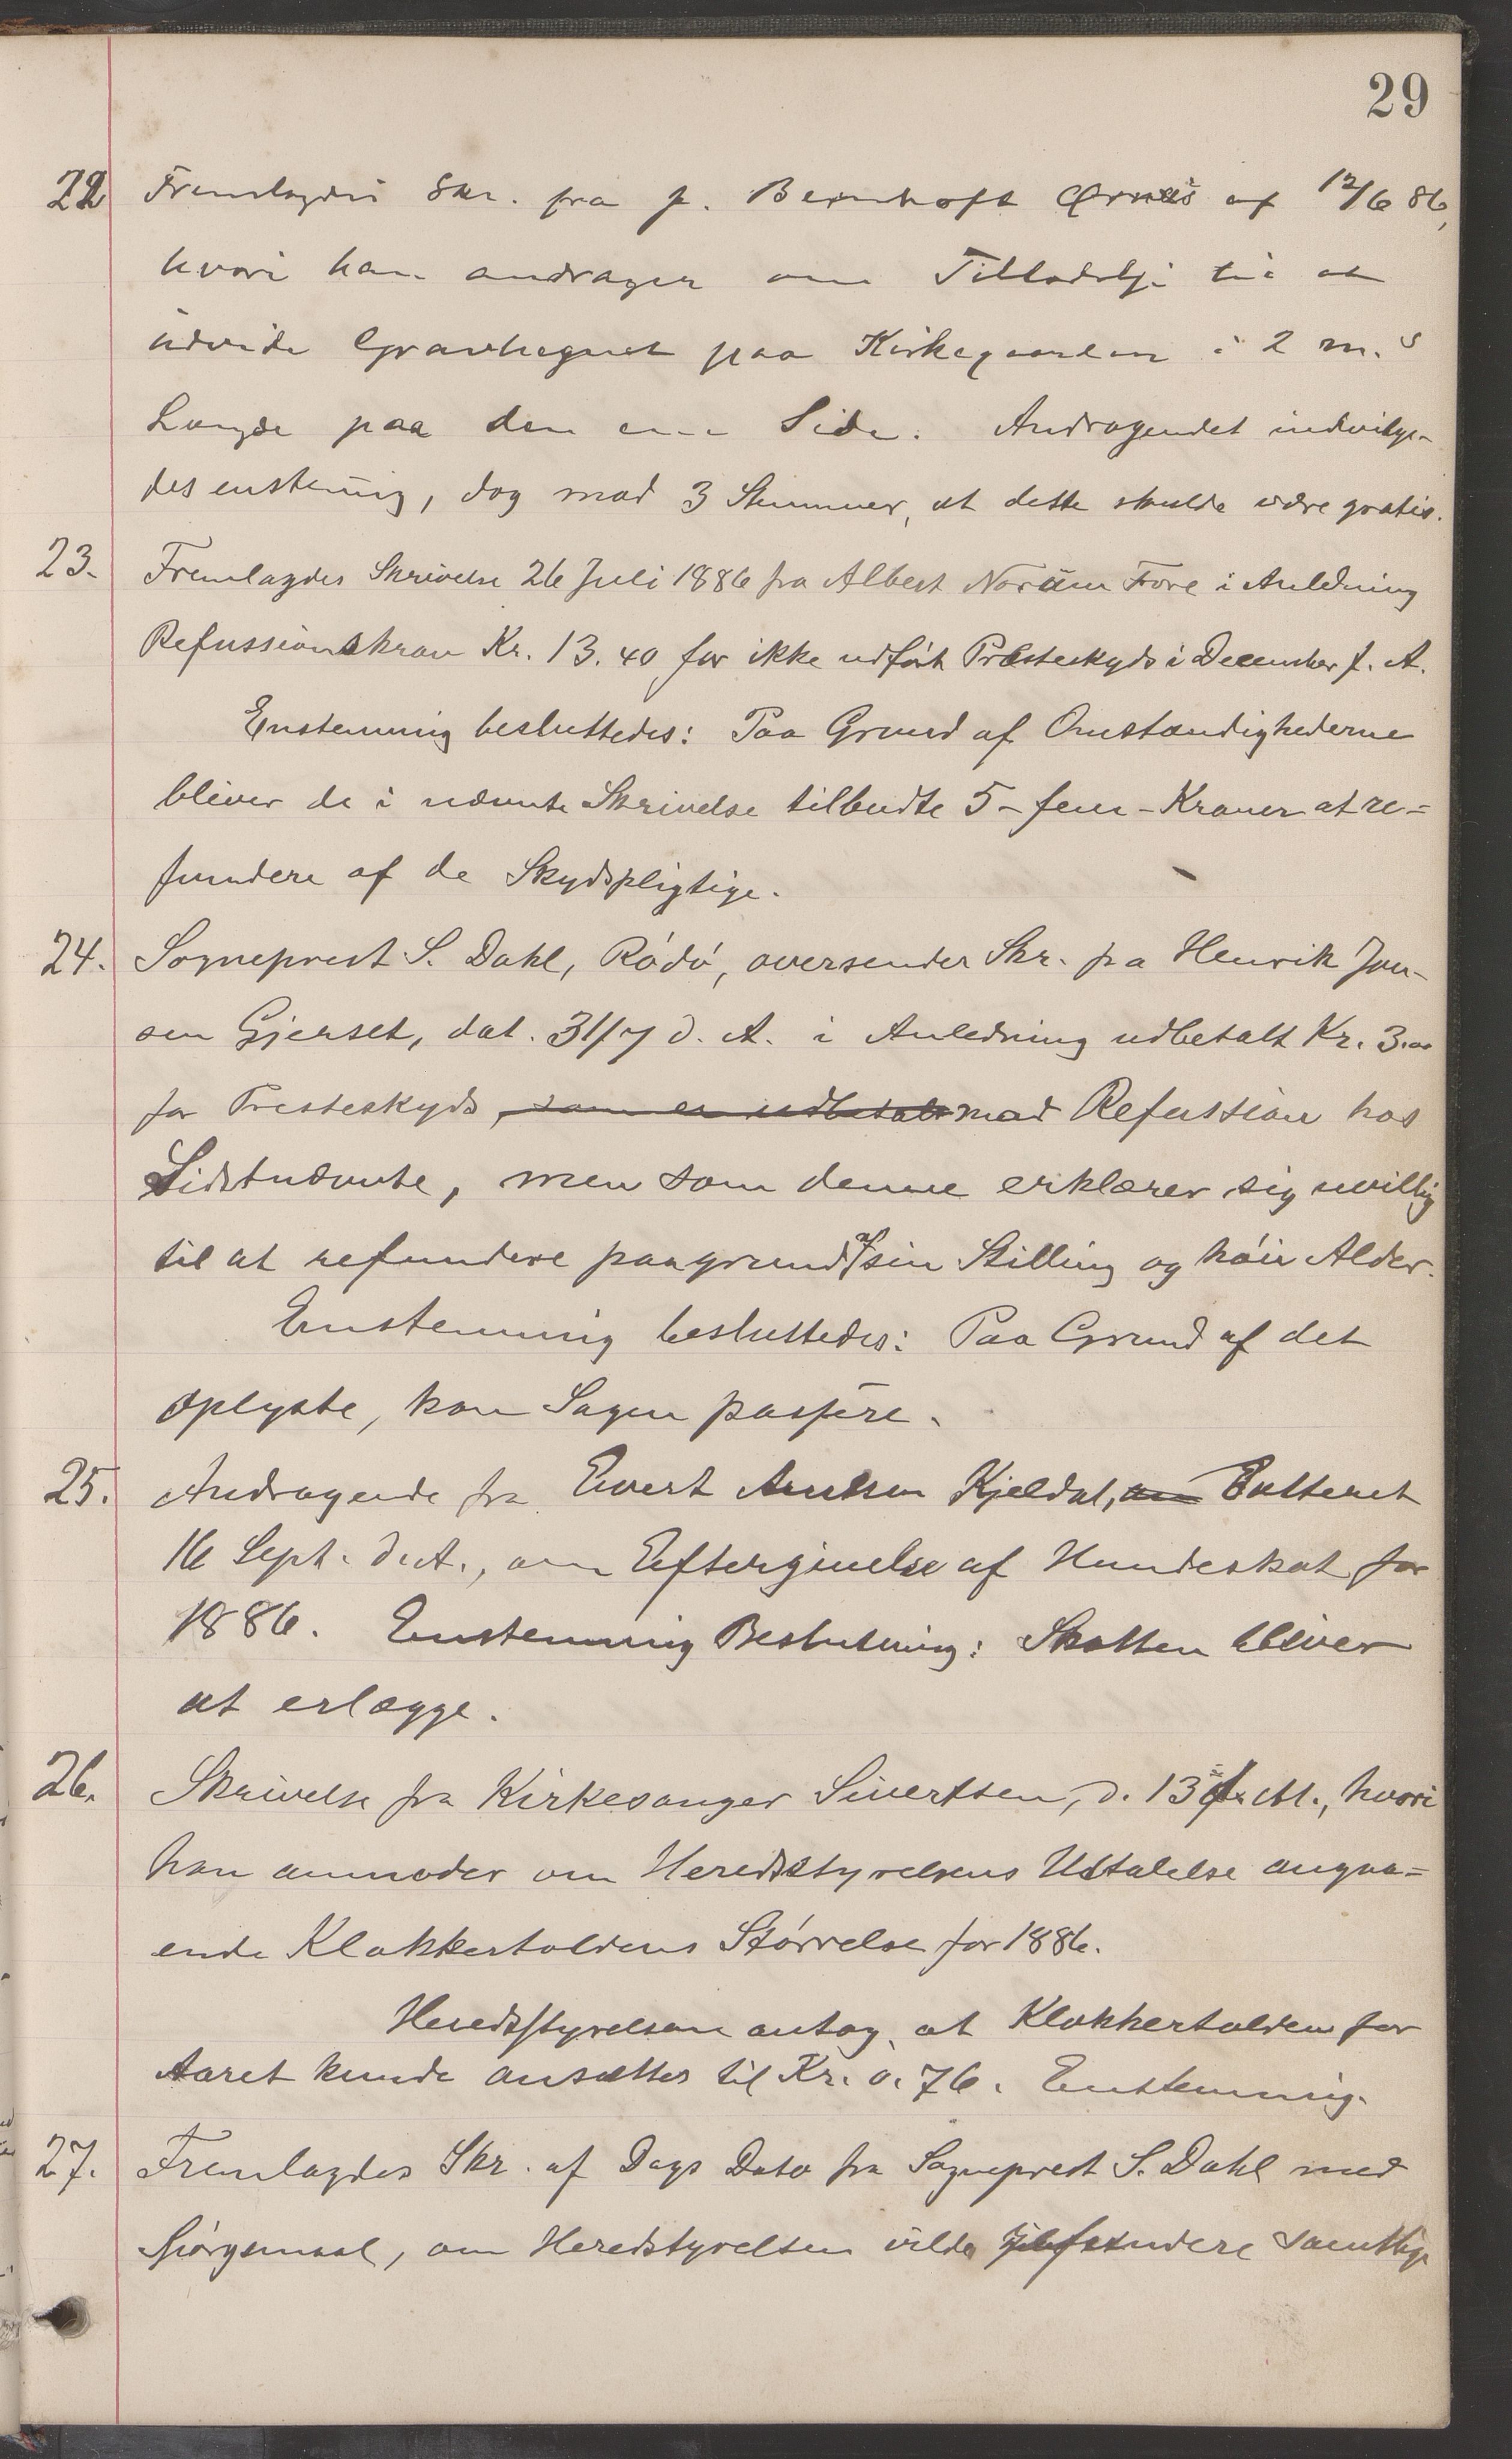 29
22 Fremlagdes Skr. fra p. Bernhoft Ørnæs af 12/6 86,
hvori han andrager om Tilladelse til at
udvide Gravhegnet paa Kirkegaarden i 2 m.s
Længde paa den ene Side. Andragendet indvilge-
des enstemig, dog mod 3 Stemmer, at dette skulde være gratis.
23. Fremlagdes Skrivelse 26 Juli 1886 fra Albert Norum Fore i Anledning
Refussionskrav Kr. 13.40 for ikke udført Præsteskyds i December f. A.
Enstemmig besluttedes: Paa Grund af Omstændighederne
bliver de i nævnte Skrivelse tilbudte 5 - fem - Kroner at re=
fundere af de Skydspligtige.
24. Sogneprest S. Dahl, Rødø, oversender Skr. fra Henrik Jen-
sen Gjerset, dat. 31/7 d. A. i Anledning udbetalt Kr. 3.00
for Presteskyds, som er udbetalt mod Refussion hos
Sidstnævnte, men som denne erklærer sig uvillig
til at refundere paagrund af sin Stilling og høie Alder.
Enstemmig besluttedes: Paa Grund af det
oplyste, kan Sagen passere.
25. Andragende fra Evert Kjeldal, om
16 Sept. d. A., om Eftergivelse af Hundeskat for
1886. Enstemmig Beslutning: Skatten bliver
at erlægge.
26. Skrivelse fra Kirkesanger Sivertsen, d. 13 M., hvori
han anmoder om Heredsstyrelsens Udtalelse angaa=
ende Klokkertoldens Størrelse for 1886.
Heredsstyrelsen antog, at Klokkertolden for
Aaret kunde ansættes til Kr. 0.76. Enstemmig.
27. Fremlagdes Skr. af Dags Dato fra Sogneprest S. Dahl med
Spørgsmaal, om Heredstyrelsen vilde refundere samtlige